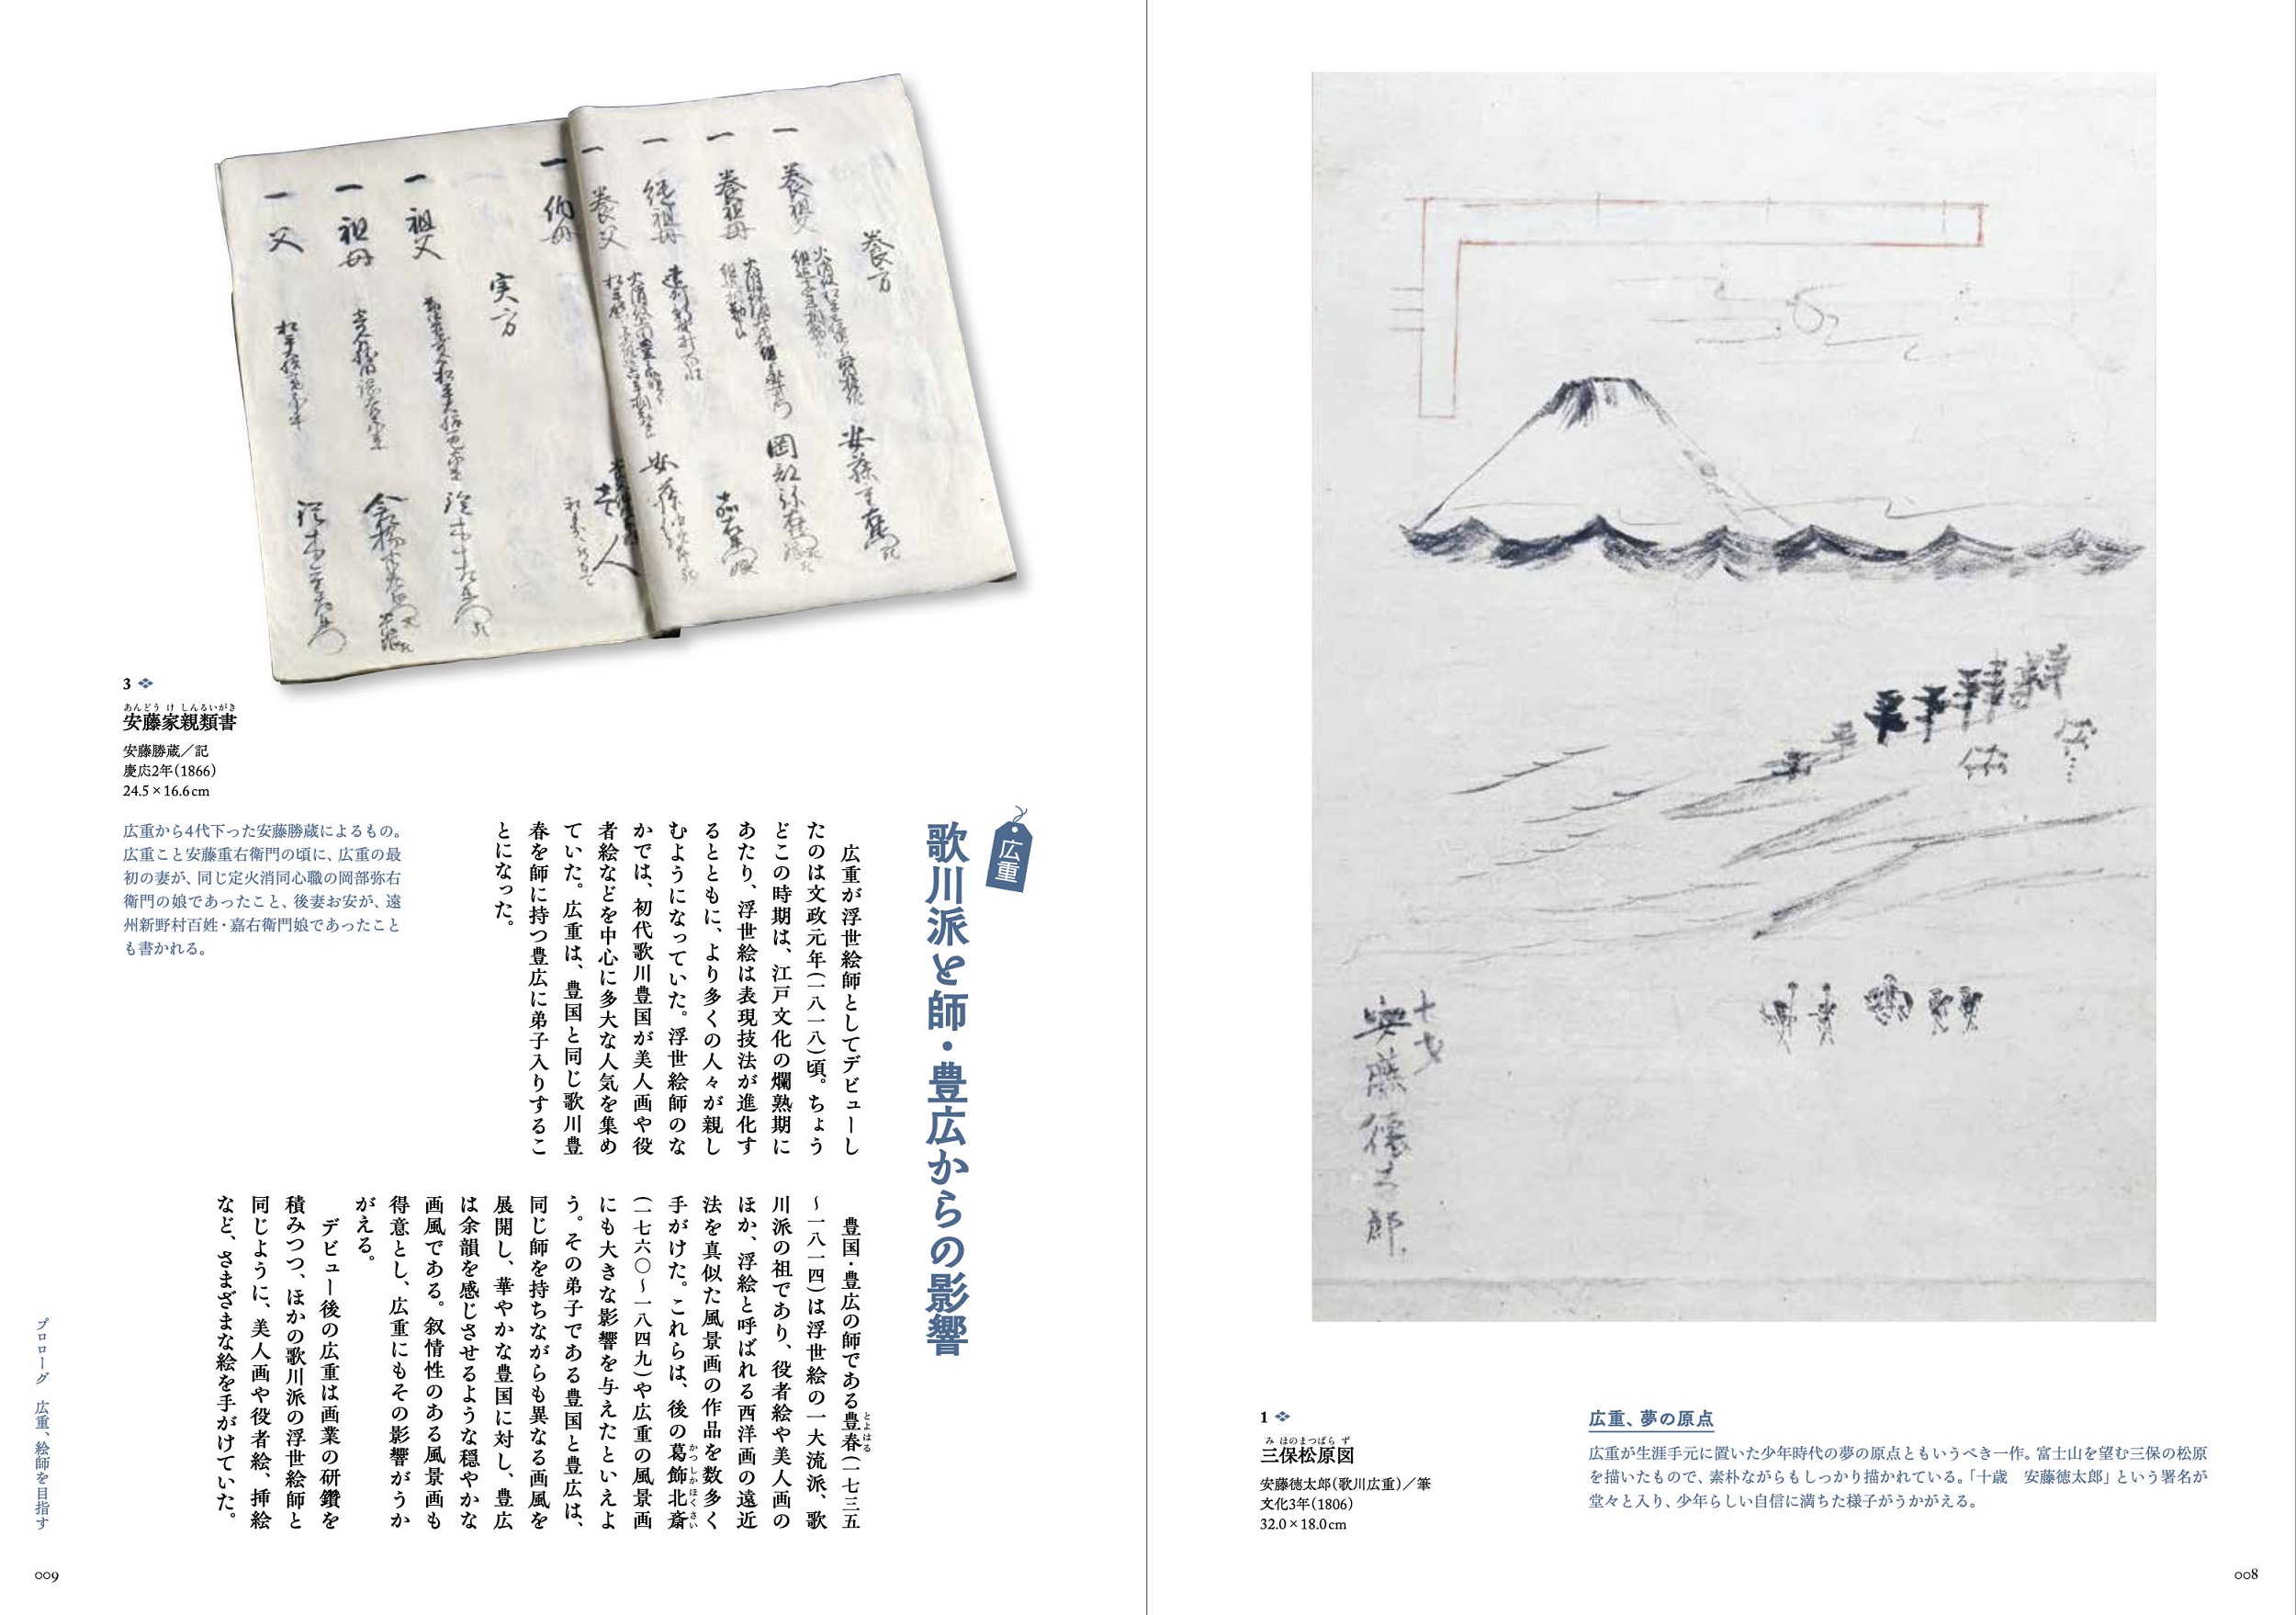 十才
安藤徳太郎
1
みほのまつばらず
三保松原図
安藤徳太郎(歌川広重)／筆
文化3年(1806)
32.0×18.0cm
広重、夢の原点
広重が生涯手元に置いた少年時代の夢の原点ともいうべき一作。富士山を望む三保の松原
を描いたもので、素朴ながらもしっかり描かれている。「十歳　安藤徳太郎」という署名が
堂々と入り、少年らしい自信に満ちた様子がうかがえる。
008
養方
一 養祖父
一 養祖母
一 継祖母
一 養父
一 伯母
実方
一 祖父
一 祖母
一 父
3
あんどうけしんるいがき
安藤家親類書
安藤勝蔵／記
慶応2年(1866)
24.5×16.6cm
広重から4代下った安藤勝蔵によるもの。
広重こと安藤重右衛門の頃に、広重の最
初の妻が、同じ定火消同心職の岡部弥右
衛門の娘であったこと、後妻お安が、遠
州新野村百姓・嘉右衛門娘であったこと
も書かれる。
広重
歌川派と師・豊広からの影響
広重が浮世絵師としてデビューし
たのは文政元年(一八一八)頃。ちょう
どこの時期は、江戸文化の爛熟期に
あたり、浮世絵は表現技法が進化す
るとともに、より多くの人々が親し
むようになっていた。浮世絵師のな
かでは、初代歌川豊国が美人画や役
者絵などを中心に多大な人気を集め
ていた。広重は、豊国と同じ歌川豊
春を師に持つ豊広に弟子入りするこ
とになった。
豊国・豊広の師である豊春(一七三五
とよはる
～一八一四)は浮世絵の一大流派、歌
川派の祖であり、役者絵や美人画の
ほか、浮絵と呼ばれる西洋画の遠近
法を真似た風景画の作品を数多く
手がけた。これらは、後の葛飾北斎
かつしかほくさい
(一七六〇～一八四九)や広重の風景画
にも大きな影響を与えたといえよ
う。その弟子である豊国と豊広は、
同じ師を持ちながらも異なる画風を
展開し、華やかな豊国に対し、豊広
は余韻を感じさせるような穏やかな
画風である。叙情性のある風景画も
得意とし、広重にもその影響がうか
がえる。
デビュー後の広重は画業の研鑽を
積みつつ、ほかの歌川派の浮世絵師と
同じように、美人画や役者絵、挿絵
など、さまざまな絵を手がけていた。
プロローグ　広重、絵師を目指す
009